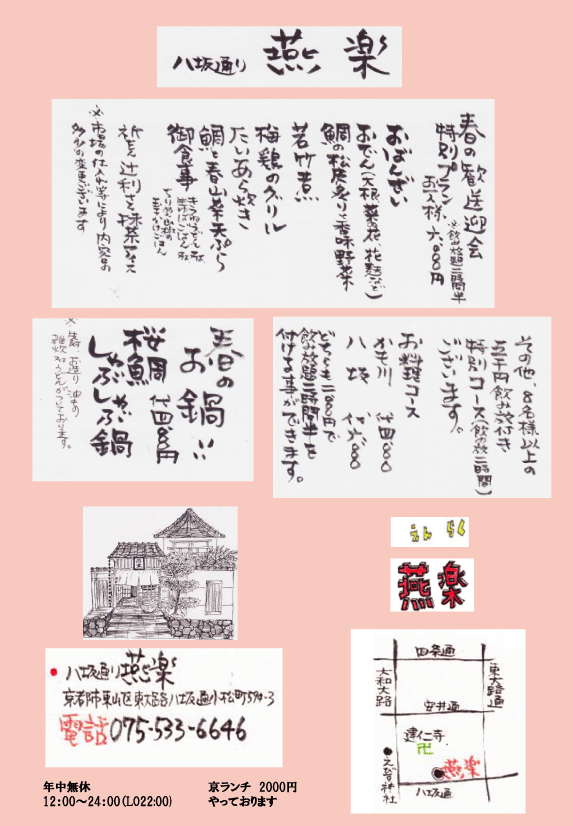 八坂通り 燕楽
春の歓送迎会
特別プラン ※飲み放題二時間半
お一人様、六、000円
おばんざい
おでん(大根、菜の花、花麩など)
鯛の松皮炙りと香味野菜
若竹煮
梅鶏のグリル
たいあら炊き
鯛と春山菜天ぷら
御食事
祇園辻利さん抹茶アイス
※市場の仕入れ等により内容の
多少の変更ございます
春の
お鍋!!
桜鯛 代四、八00円
しゃぶしゃぶ鍋
その他、8名様以上の
五千円飲み放付き
特別コース(飲み放二時間)
ございます。
お料理コース
かも川 代四、八00
八坂 代六、000
どちらも二、000円で
飲み放題二時間半を
付ける事ができます。
えん らく
燕楽
八坂通り 燕楽
京都市東山区東大路八坂通小松町594-3
電話 075-533-6646
四条通
大和大路
東大路通
安井通
建仁寺
卍
えびす神社
燕楽
八坂通
年中無休
12:00～24:00(LO22:00)
京ランチ 2000円
やっております